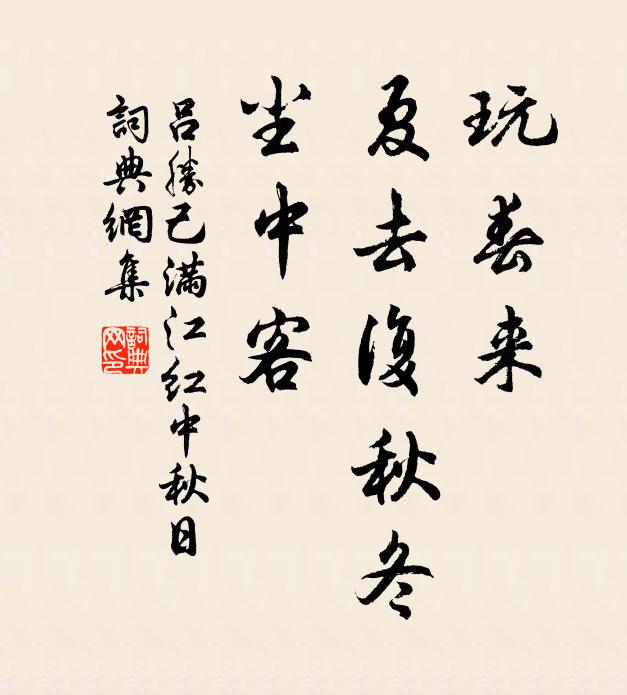 玩春来
夏去復秋冬
尘中客
吕勝己满江红中秋日
詞典網集
詞典
网印